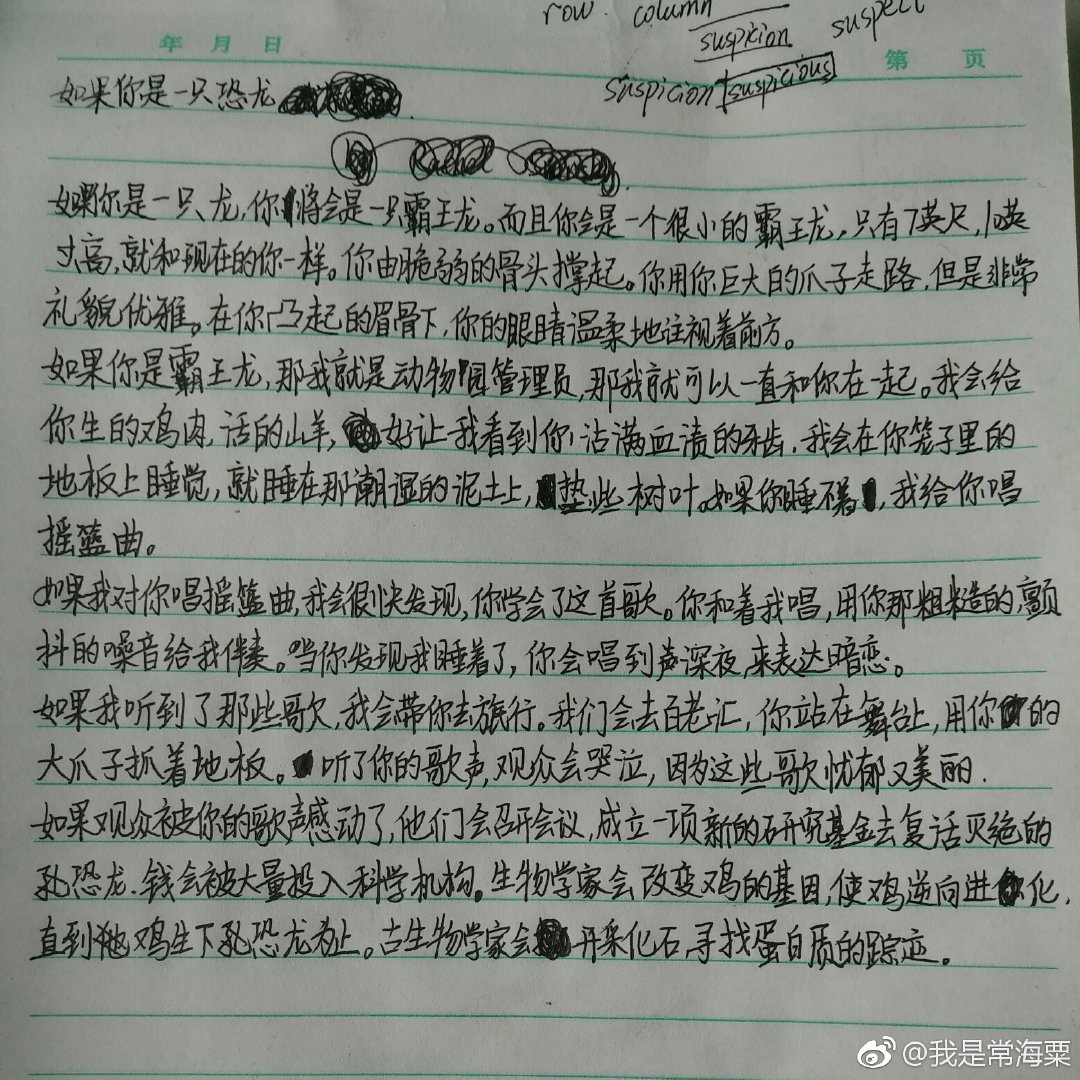 row. column
suspicion suspect
年 月 日
第 页
suspicion suspicious
如果你是一只恐龙
如果你是一只龙,你将会是一只霸王龙。而且你会是一个很小的霸王龙,只有7英尺,10英
寸高,就和现在的你一样。你由脆弱的骨头撑起。你用你巨大的爪子走路,但是非常
礼貌优雅。在你凸起的眉骨下,你的眼睛温柔地注视着前方。
如果你是霸王龙,那我就是动物园管理员,那我就可以一直和你在一起。我会给
你生的鸡肉,活的山羊,好让我看到你沾满血渍的牙齿,我会在你笼子里的
地板上睡觉,就睡在那潮湿的泥土上,垫些树叶。如果你睡不着,我给你唱
摇篮曲。
如果我对你唱摇篮曲,我会很快发现,你学会了这首歌。你和着我唱,用你那粗糙的,颤
抖的嗓音给我伴奏。当你发现我睡着了,你会唱到声深夜,来表达暗恋。
如果我听到了那些歌,我会带你去旅行。我们会去百老汇,你站在舞台上,用你的
大爪子抓着地板。听了你的歌声,观众会哭泣,因为这些歌忧郁又美丽.
如果观众被你的歌声感动了,他们会召开会议,成立一项新的研究基金去复活灭绝的
恐龙.钱会被大量投入科学机构。生物学家会改变鸡的基因,使鸡逆向进化,
直到鸡生下恐龙为止。古生物学家会开采化石,寻找蛋白质的踪迹。
@我是常海粟